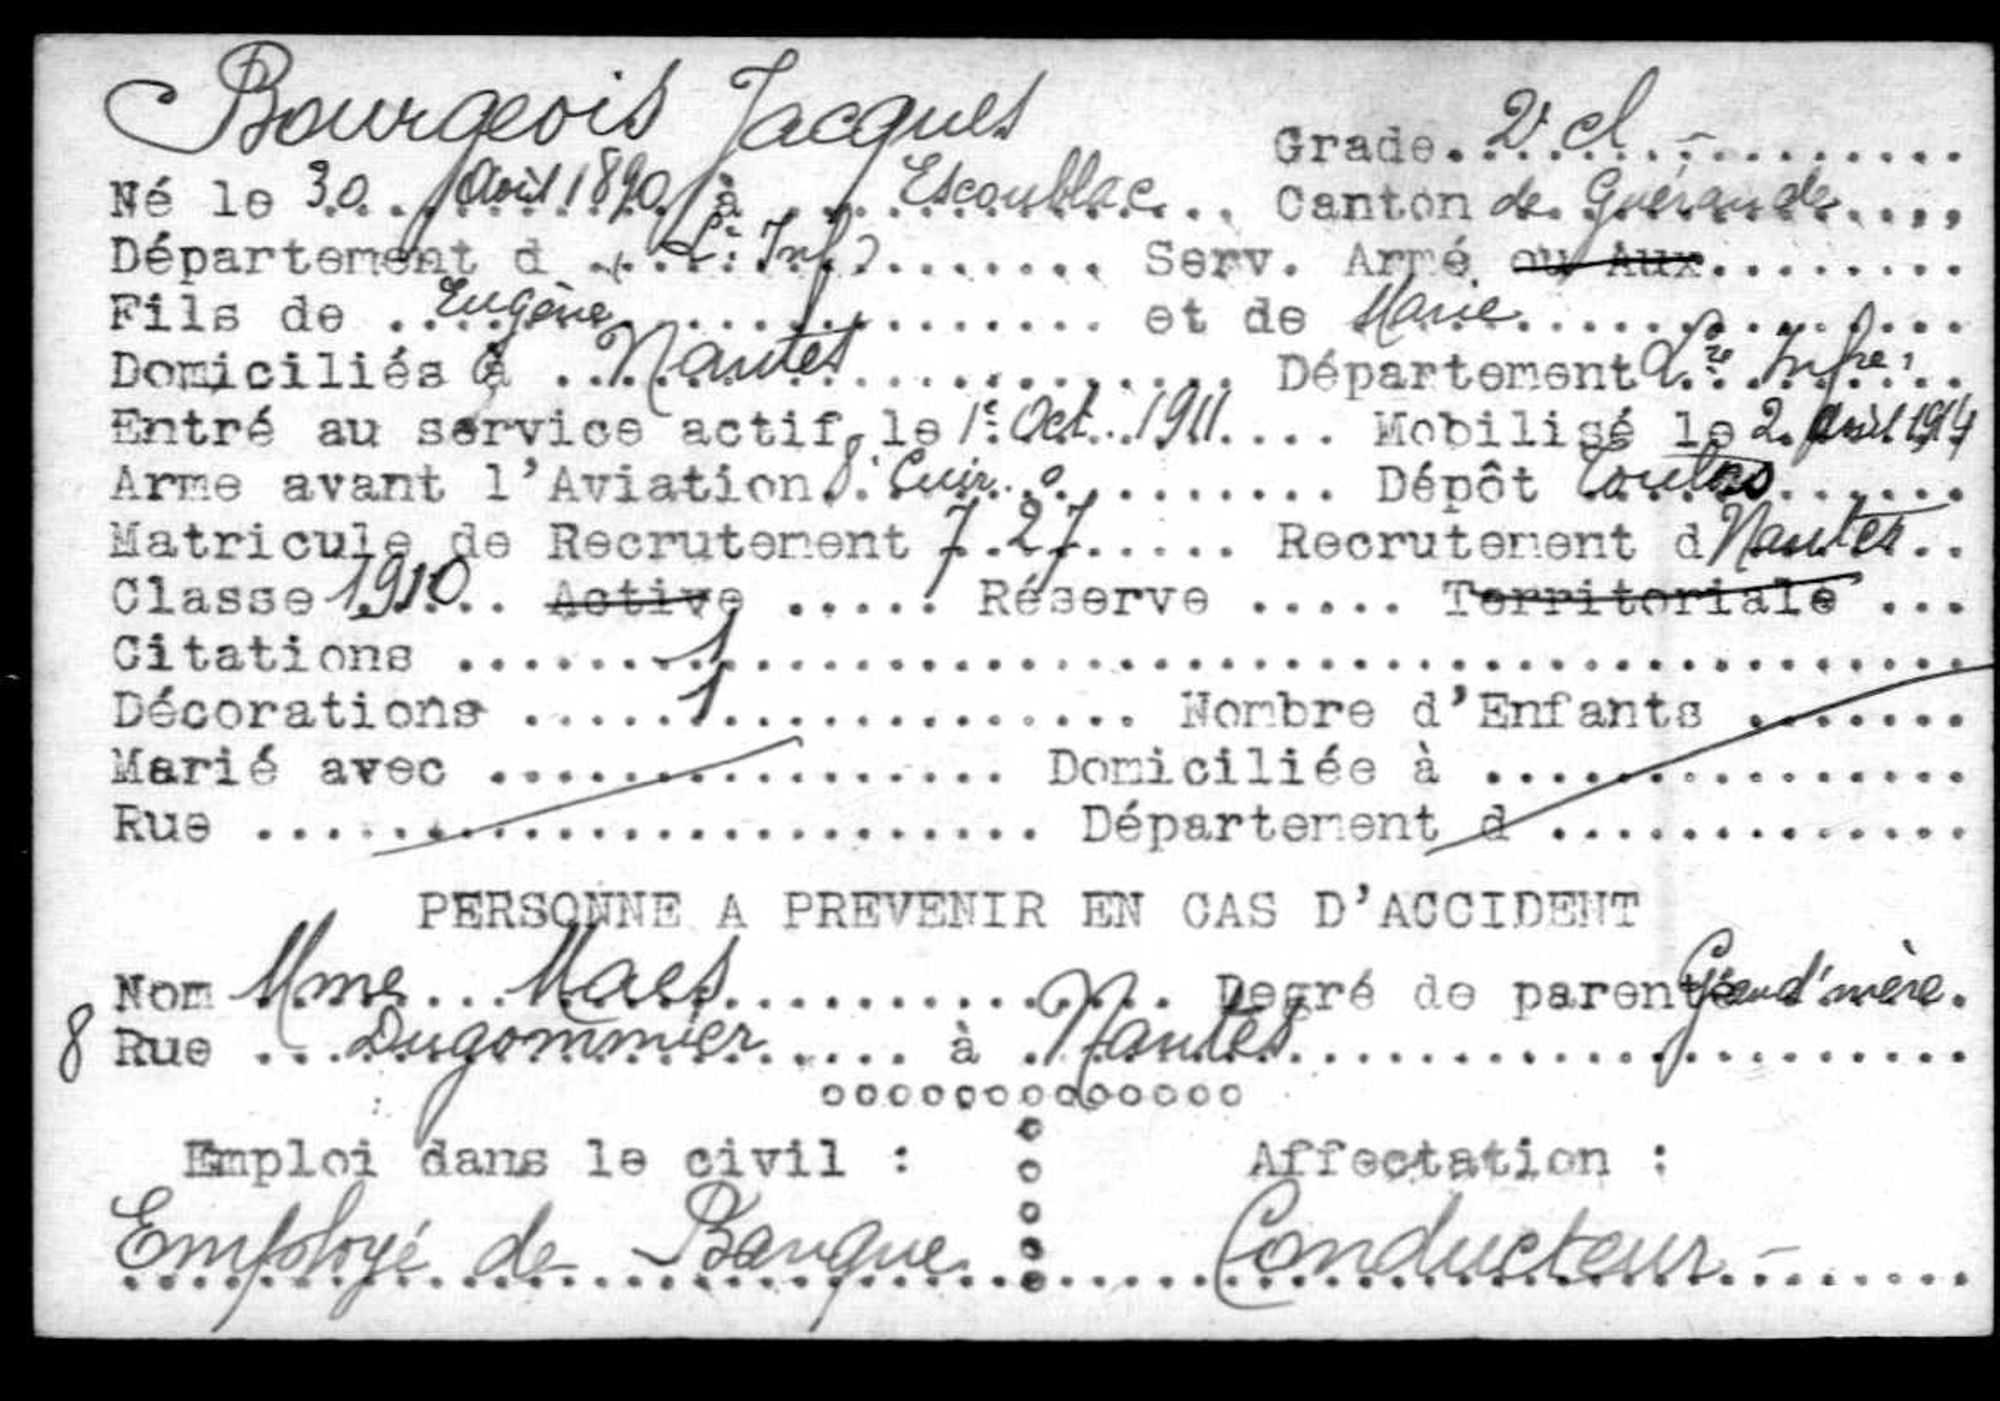 Bourgeois Jacques Grade. 2e cl -
Né le 30 Avril 1890 à Escoublac Canton de Guérande
Département d L. Inf. Serv. Armé ou Aux
Fils de Eugène et de Marie
Domiciliés à Nantes Département Lre Infre
Entré au service actif, le 1e Oct. 1911 Mobilisé le 2 1914
Arme avant l'Aviation 8e Cuir. Dépôt
Matricule de Recrutement 727 Recrutement d Nantes
Classe 1910 Active Réserve Territoriale
Citations 1
Décorations 1 Nombre d'Enfants
Marié avec Domiciliée à
Rue Département d
PERSONNE A PREVENIR EN CAS D'ACCIDENT
Nom Mme Maes Degré de parenté Grand'mère.
8 Rue Dugommier à Nantes
Emploi dans le civil : Affectation :
Employé de Banque Conducteur -